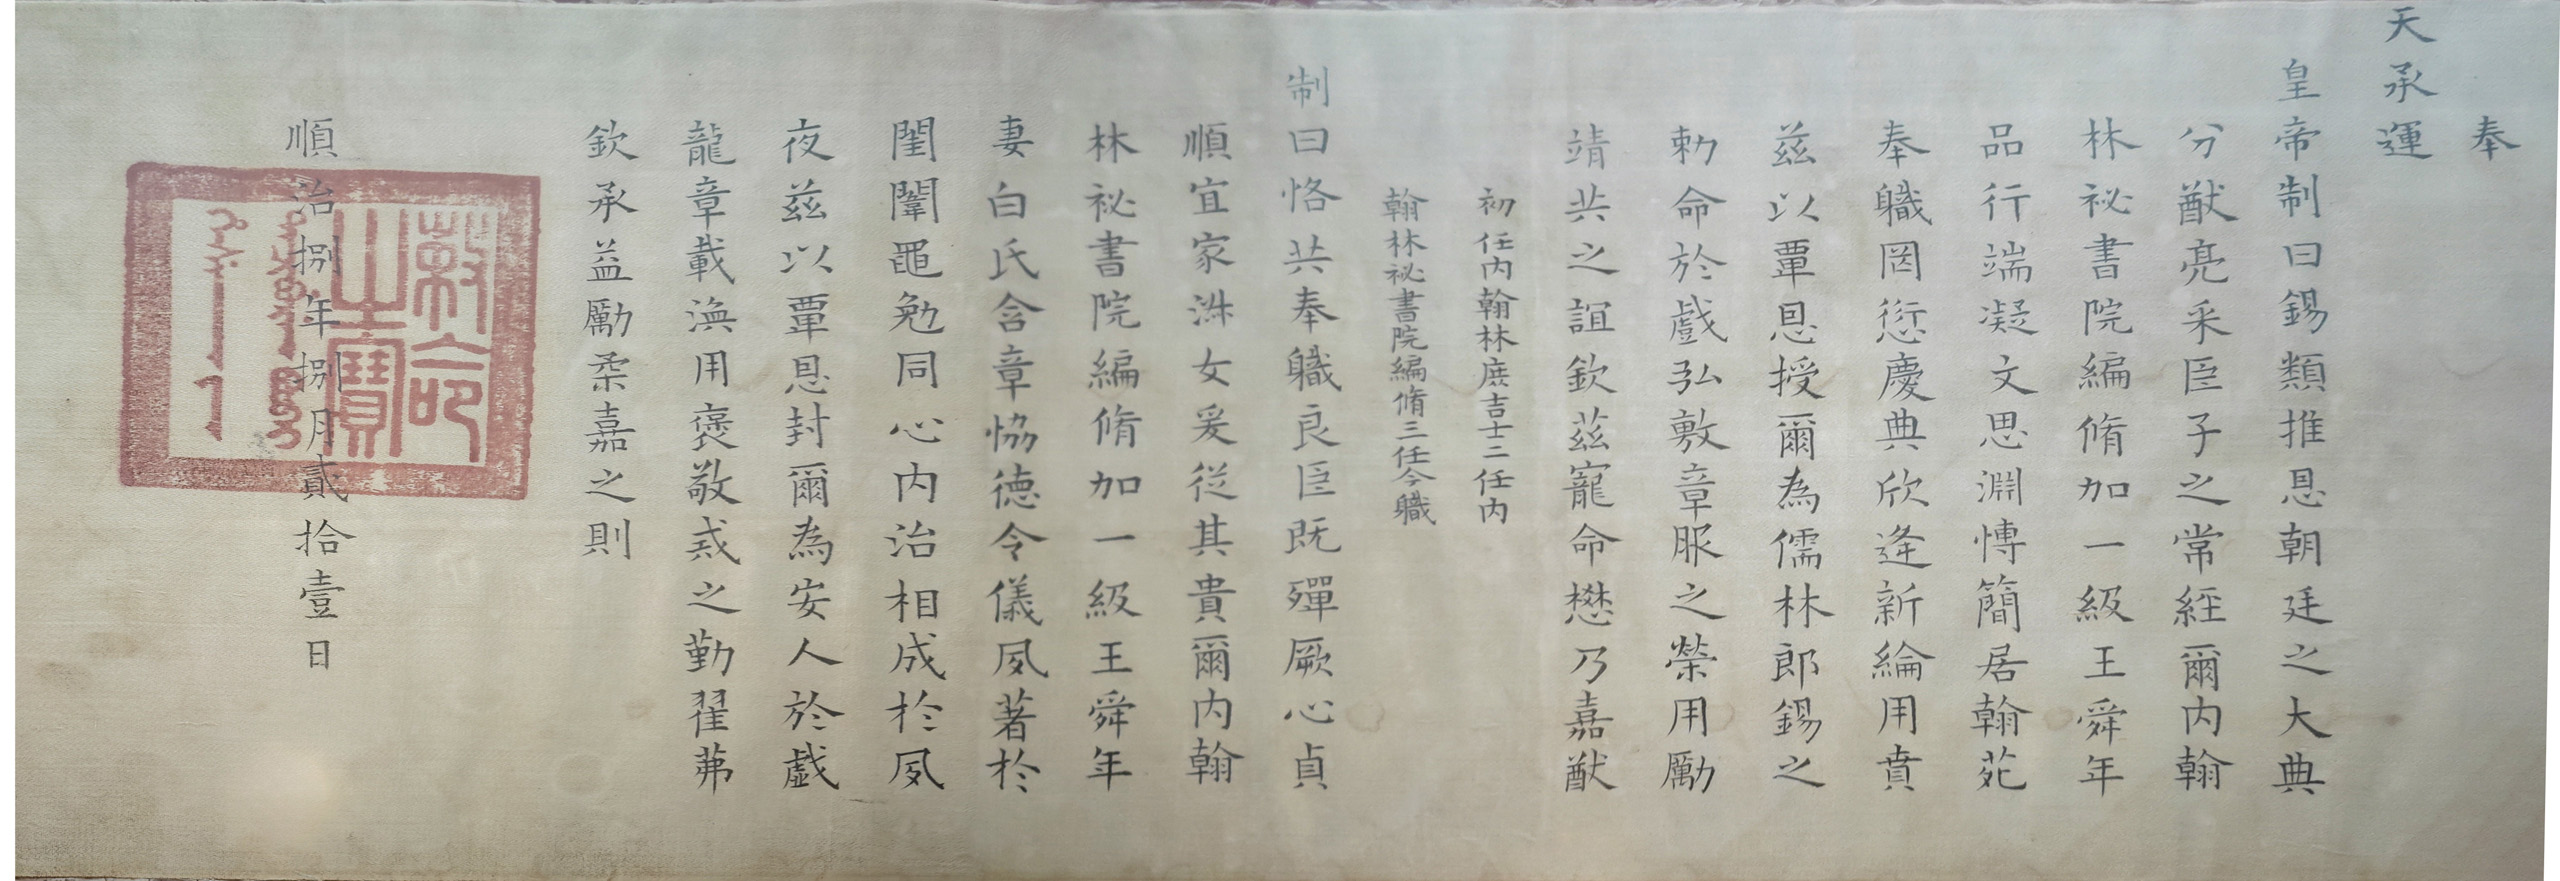 奉
天承運
皇帝制曰錫類推恩朝廷之大典
分猷亮采臣子之常經爾内翰
林祕書院編脩加一級王舜年
品行端凝文思淵愽簡居翰苑
奉職罔愆慶典欣逢新綸用賁
兹以覃恩授爾為儒林郎錫之
勑命於戲弘敷章服之榮用勵
靖共之誼欽兹寵命懋乃嘉猷
初任内翰林庶吉士二任内
翰林祕書院編脩三任今職
制曰恪共奉職良臣既殫厥心貞
順宜家淋女爰從其貴爾内翰
林祕書院編脩加一級王舜年
妻白氏含章恊德令儀夙著於
閨闈黽勉同心内治相成於夙
夜兹以覃恩封爾為安人於戲
龍章載渙用褒敬戒之勤翟茀
欽承益勵柔嘉之則
順治捌年捌月貳拾壹日
敕命
之寶